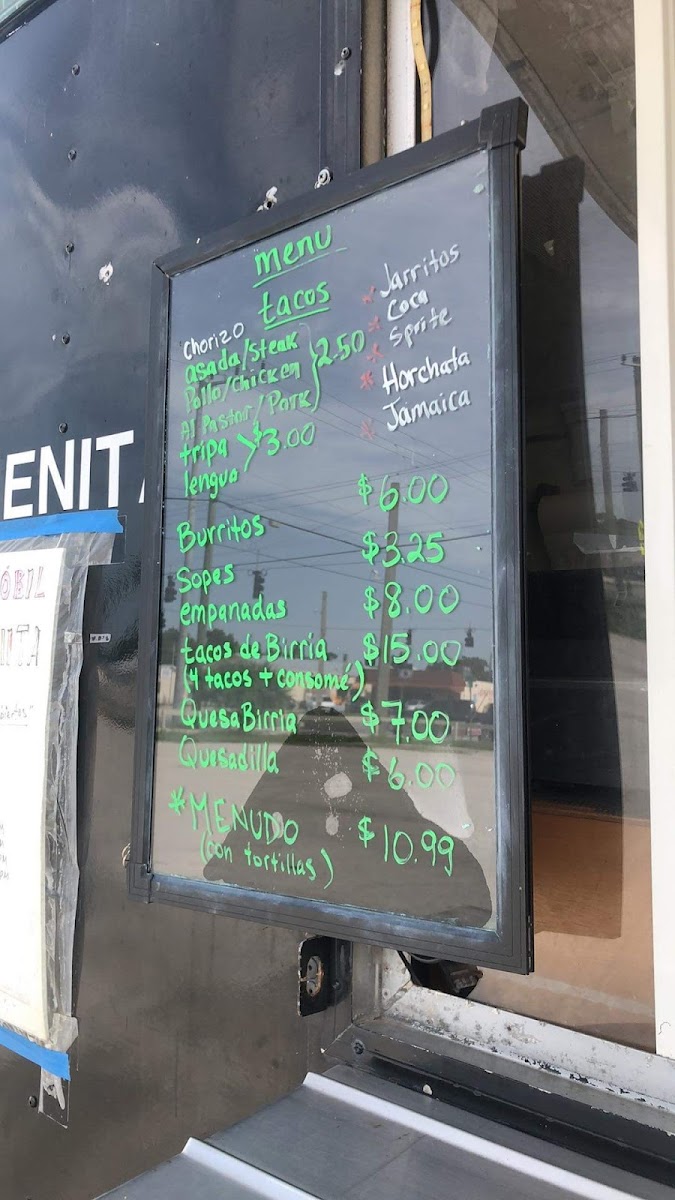 menu
tacos
Chorizo
asada/steak
Pollo/Chicken
Al Pastor/Pork
2.50
tripa
lengua
$3.00
* Jarritos
* Coca
* Sprite
* Horchata
* Jamaica
Burritos $6.00
Sopes $3.25
empanadas $8.00
tacos de Birria $15.00
(4 tacos + consomé)
QuesaBirria $7.00
Quesadilla $6.00
*MENUDO $10.99
(con tortillas)
ENIT
ÓBIL